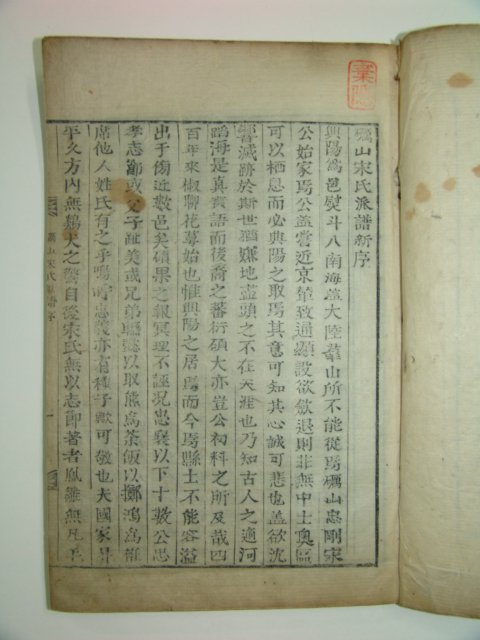 礪山宋氏派譜新序
興陽爲邑熨斗入南海蓋大陸羣山所不能從焉礪山忠剛宋
公始家焉公盖嘗近京輦致通顯設欲斂退則非無中土奧區
可以栖息而必興陽之取焉其意可知其心誠可悲也盖欲沈
響滅跡於斯世猶嫌地盡頭之不在天涯也乃知古人之適河
蹈海是真實語而後裔之蕃衍碩大亦豈公初料之所及哉四
百年來椒聊花萼始也惟興陽之居焉而今焉縣土不能容溢
出于傍近數邑矣碩果之報冥理不誣況忠襄以下十數公忠
孝志節或父子趾美或兄弟聯以取熊魚茶飯以擲鴻爲
席他人姓氏有之乎嗚呼忠義亦有種子歟可敬也夫國家昇
平久方內無鷄犬之警自後宋氏無以志節著者鳳雛無凡毛
礪山宋氏派譜序
一